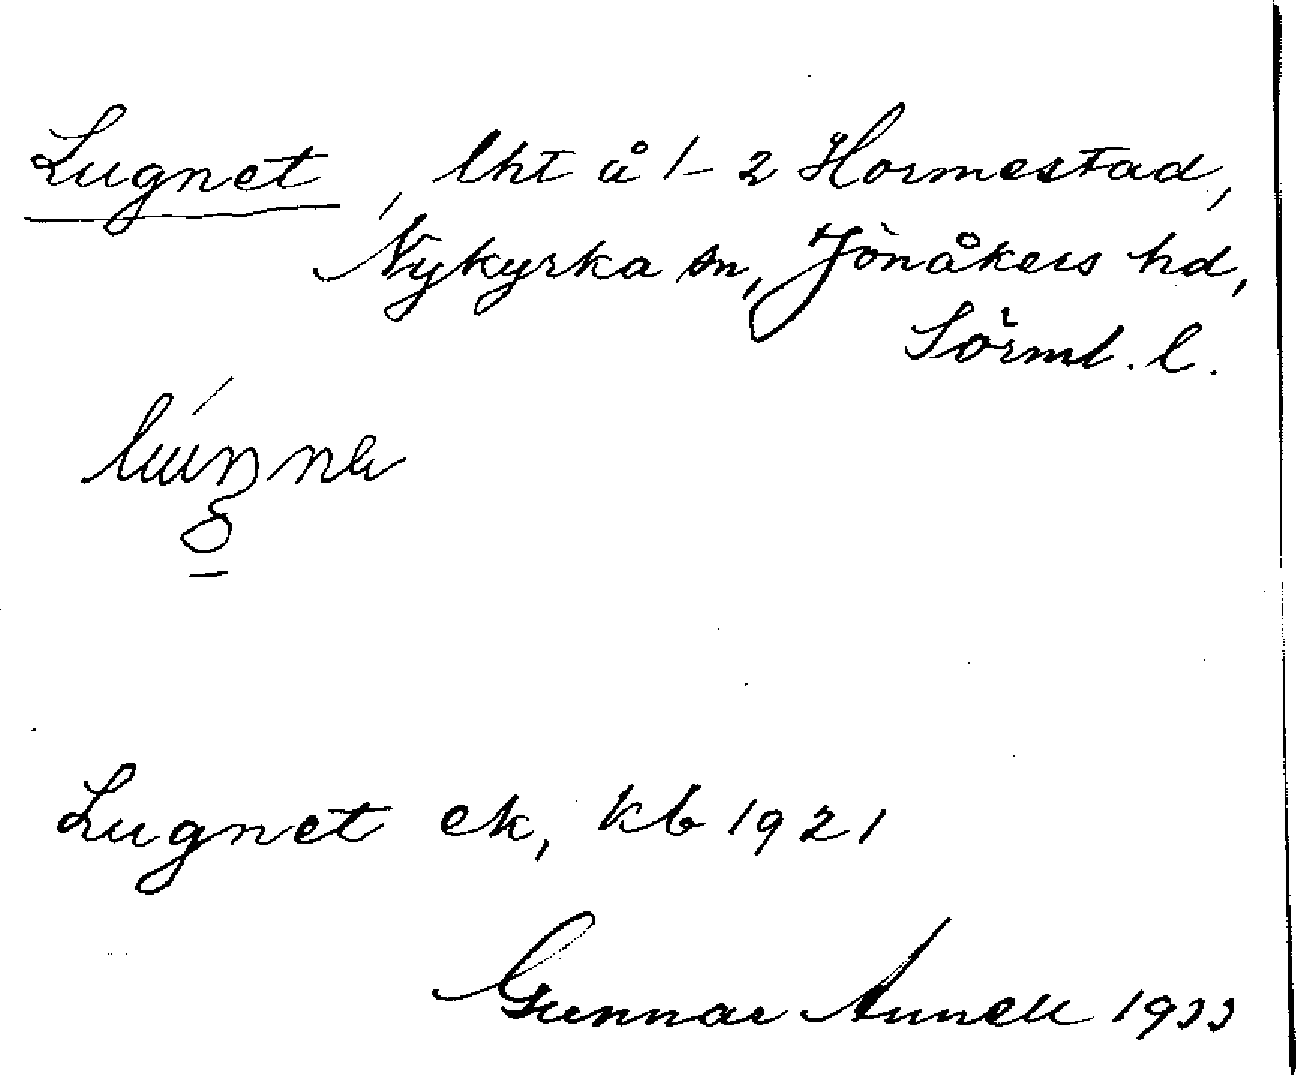 Lugnet, lht å 1-2 Hormestad,
Nykyrka sn, Jönåkers hd,
Sörml. l.
Lugnet ek, kb 1921
Gunnar Annell 1933